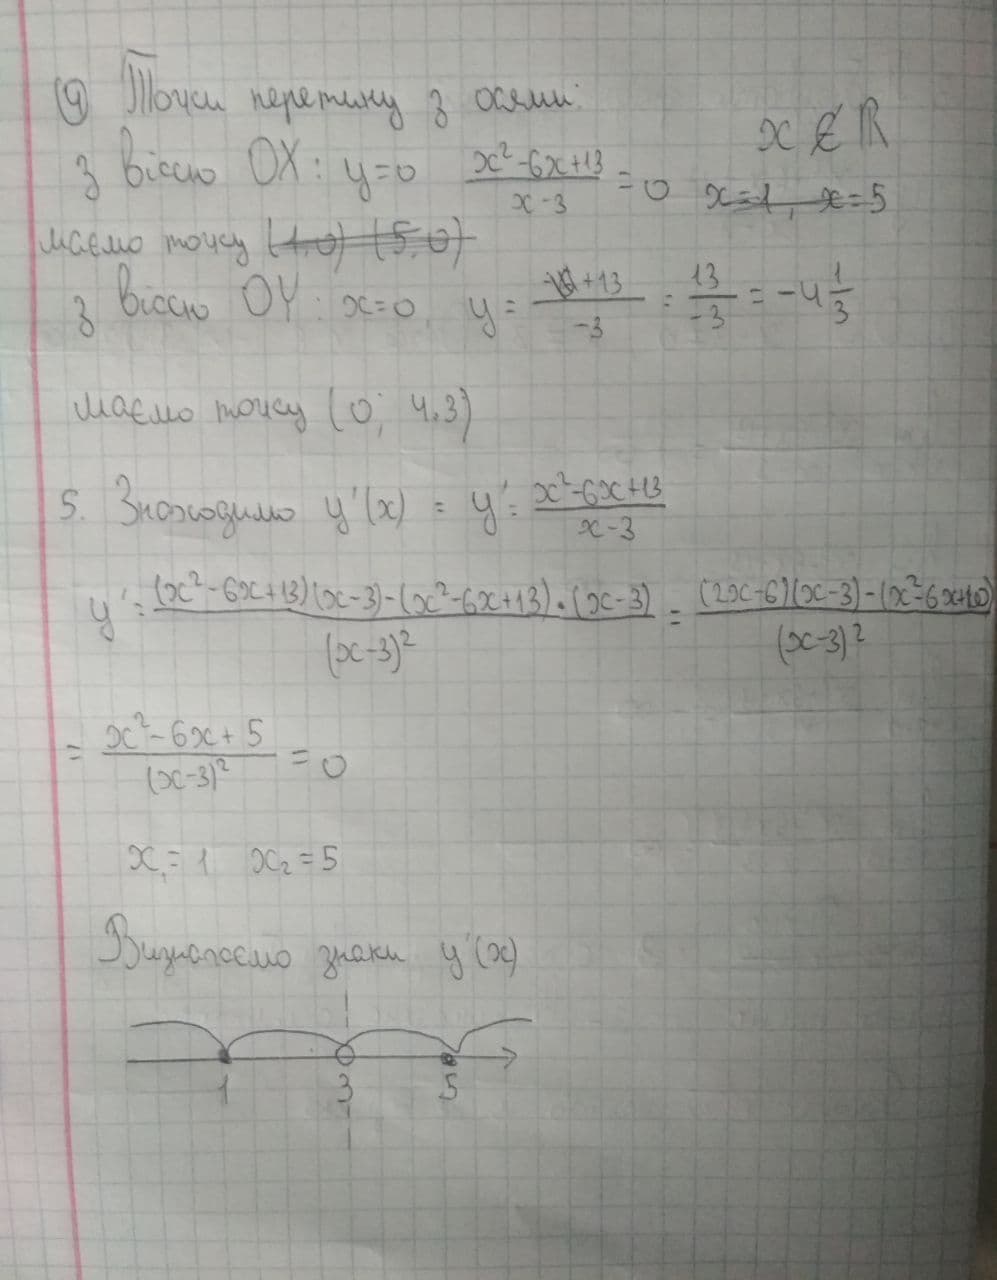 ④ Точки перетину з осями:
x ∉ ℝ
З віссю OX: y=0 (x²-6x+13)/(x-3) = 0 ~~x=1, x=5~~
маємо точку ~~(1,0) (5,0)~~
З віссю OY: x=0, y = (+13)/(-3) = 13/(-3) = -4 1/3
маємо точку (0; 4.3)
5. Знаходимо y'(x) = y' = (x²-6x+13)/(x-3)
y' = ((x²-6x+13)(x-3)-(x²-6x+13)·(x-3))/(x-3)² = ((2x-6)(x-3)-(x²-6x+10))/(x-3)²
= (x²-6x+5)/(x-3)² = 0
x₁=1 x₂=5
Визначаємо знаки y'(x)
1 3 5